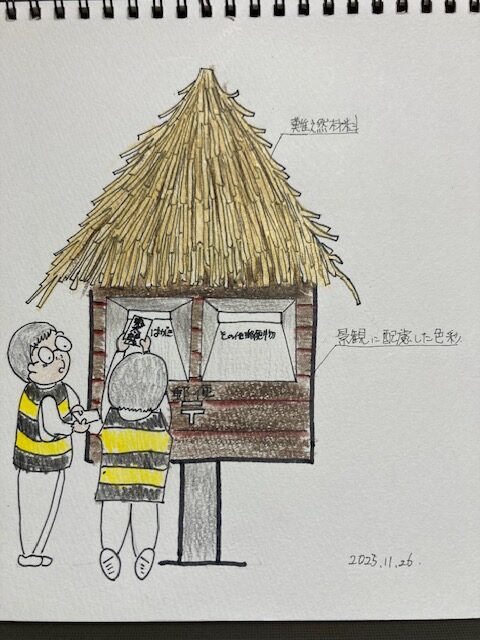 難燃材料
はがき
その他郵便物
景観に配慮した色彩
郵便
〒
2025.11.26.